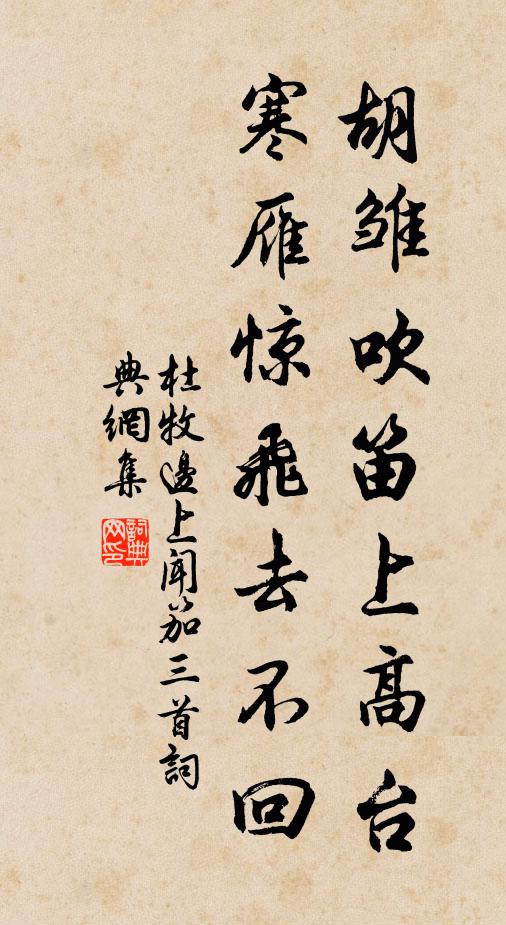 胡雏吹笛上高台
寒雁惊飛去不回
杜牧邊上闻笳三首詞
典網集
詞典网印